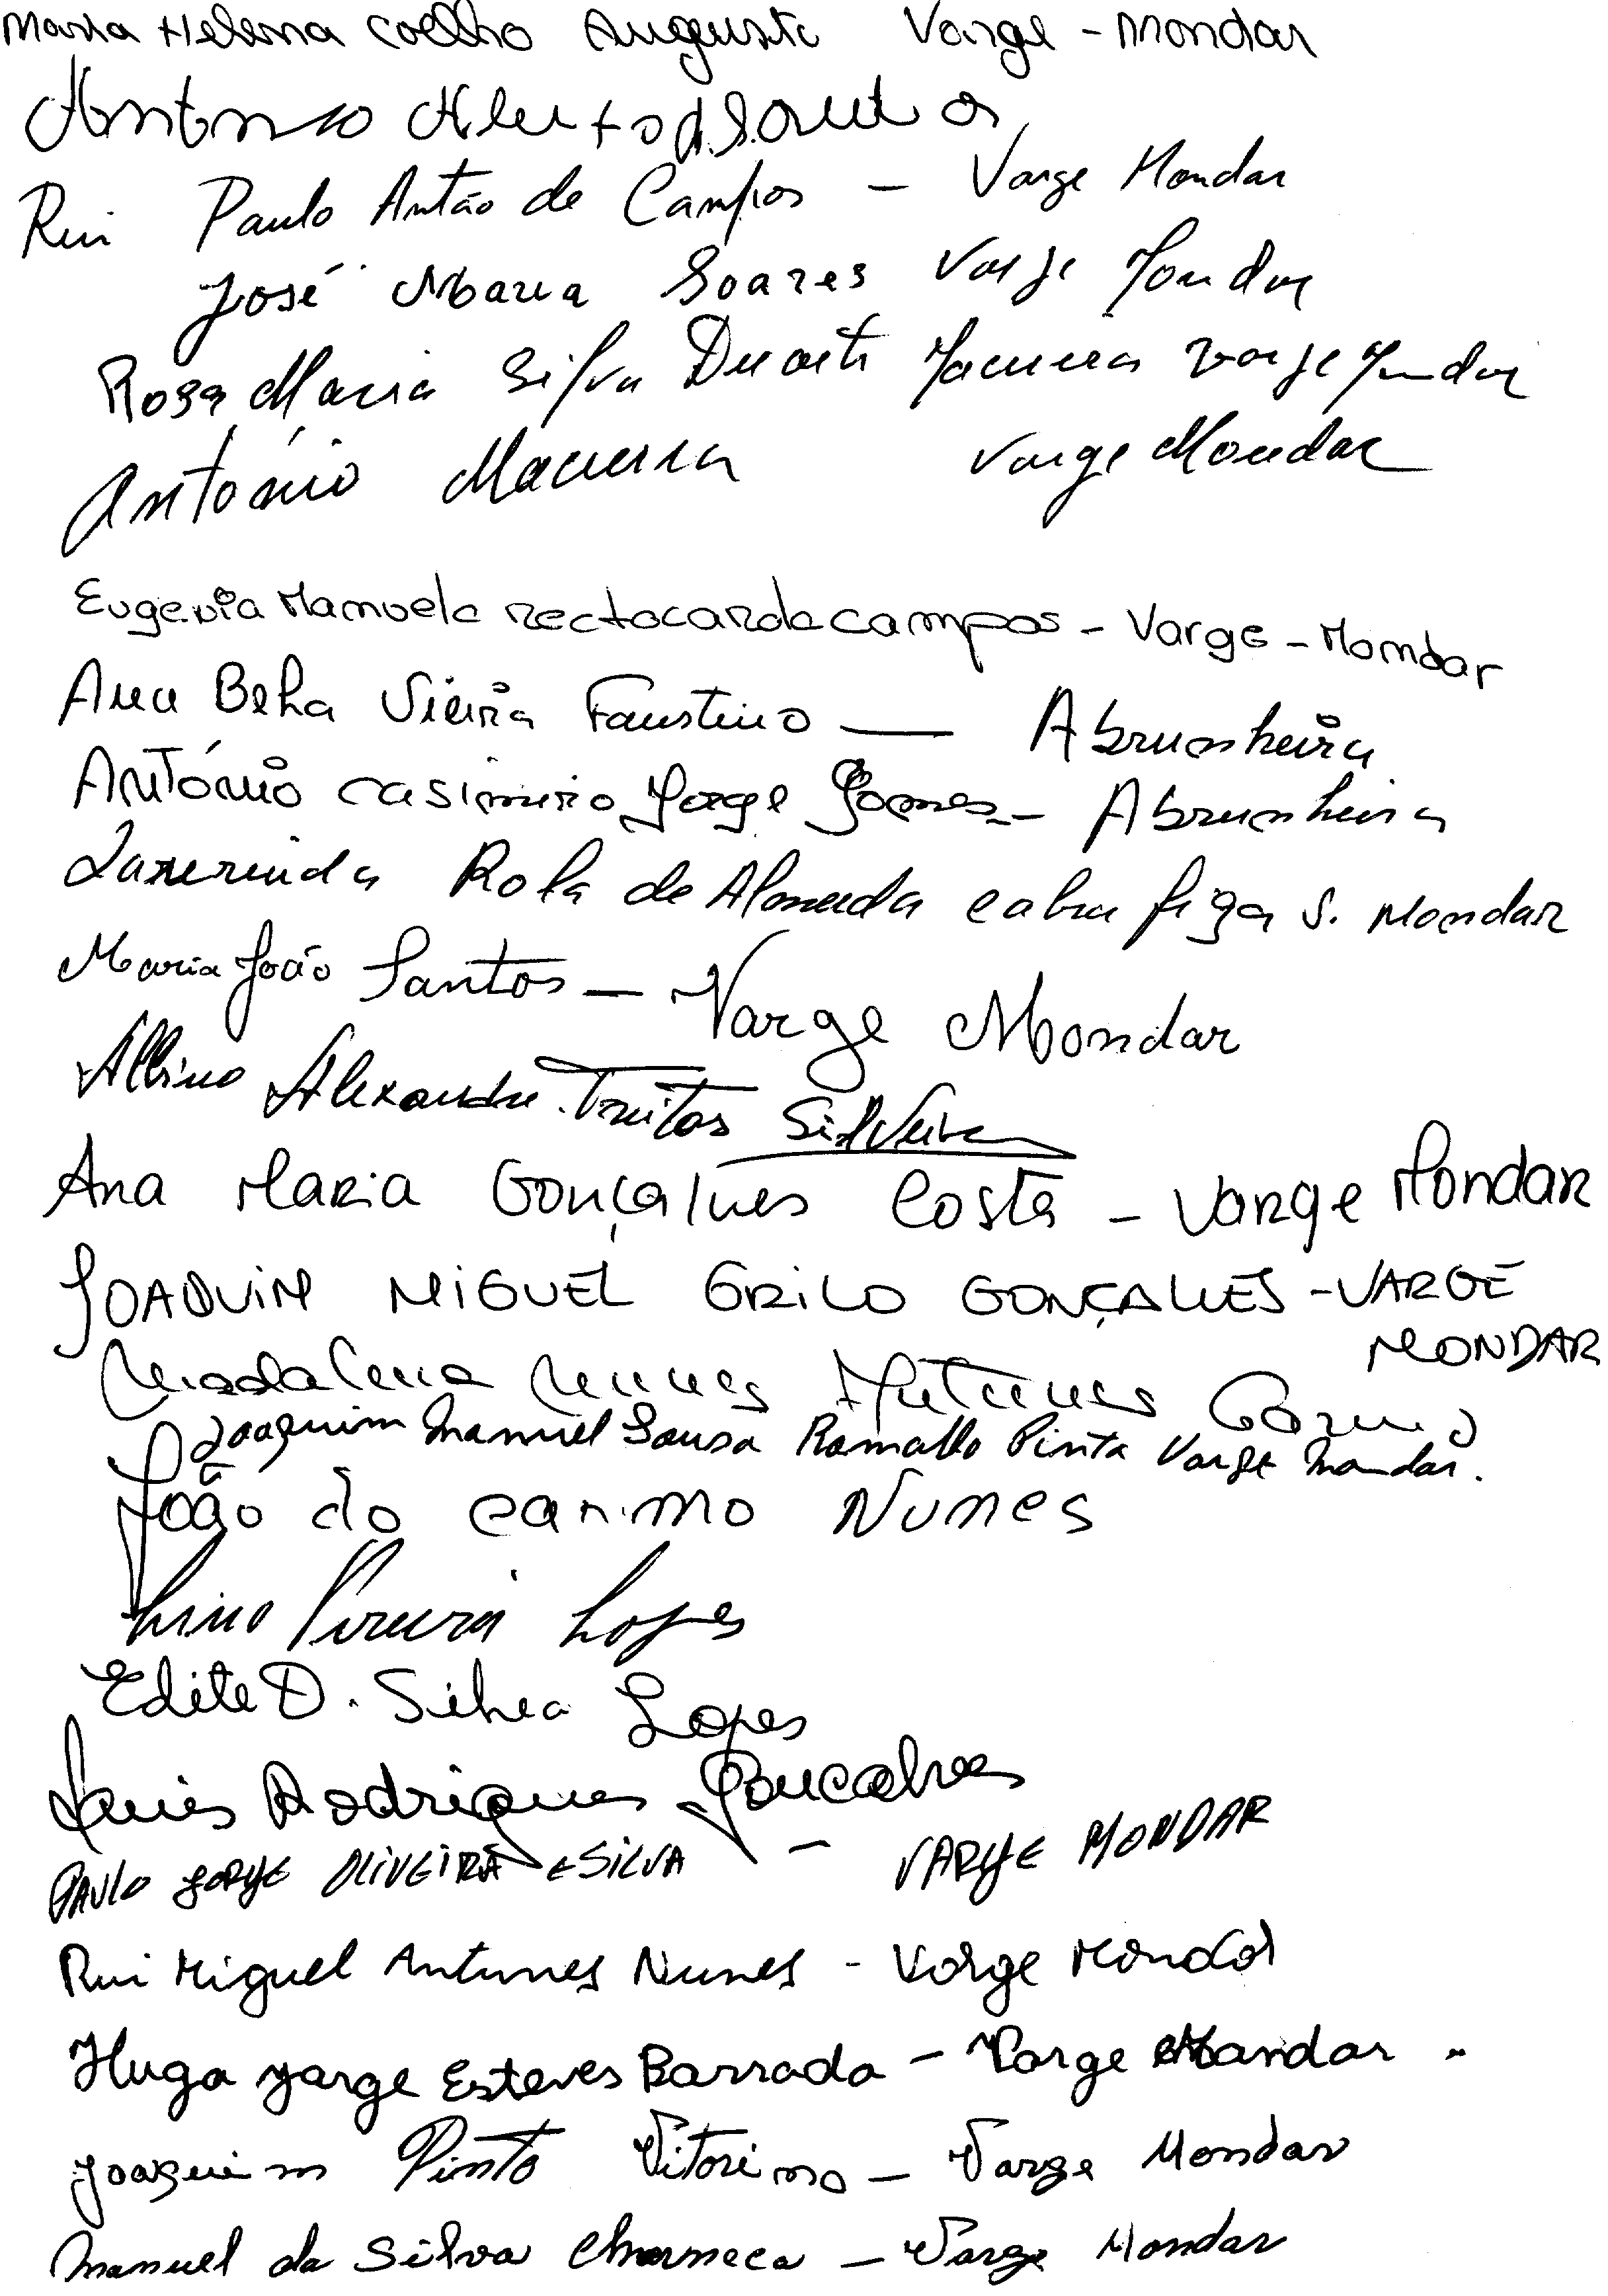 Maria Helena Coelho Augusto Varge - Mondar
António Alberto
Rui Paulo Antão de Campos - Varge Mondar
José Maria Soares Varge Mondar
Rosa Maria Silva Duarte Macieira Varge Mondar
António Macieira Varge Mondar
Eugenia Manuela campos - Varge - Mondar
Ana Bela Vieira Faustino — Abrunheira
António Casimiro Jorge Gomes - Abrunheira
Rola de Almeida cabra figa S. Mondar
Maria João Santos - Varge Mondar
Albino Alexandre Freitas Silveira
Ana Maria Gonçalves Costa - Varge Mondar
JOAQUIM MIGUEL GRILO GONÇALVES - VARGE
MONDAR
Madalena Nunes Antunes
Joaquim Manuel Sousa Ramalho Pinta Varge Mondar.
João do Carmo Nunes
Lino Pereira Lopes
Edite D. Silva Lopes
Rodrigues Goncalves
PAULO JORGE OLIVEIRA E SILVA - VARGE MONDAR
Rui Miguel Antunes Nunes - Varge Mondar
Hugo Jorge Esteves Barrada - Varge Mondar
Joaquim Pinto Vitorino - Varge Mondar
Manuel da Silva Charneca - Varge Mondar